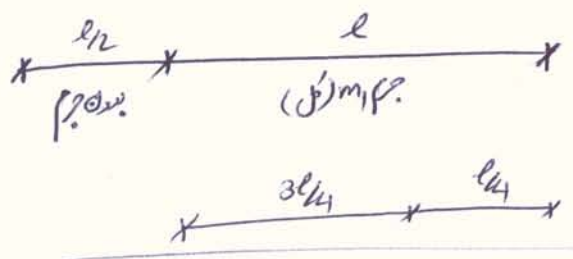 l/2 l
بدون جرم جرم m₁ (کل)
3l/4 l/4